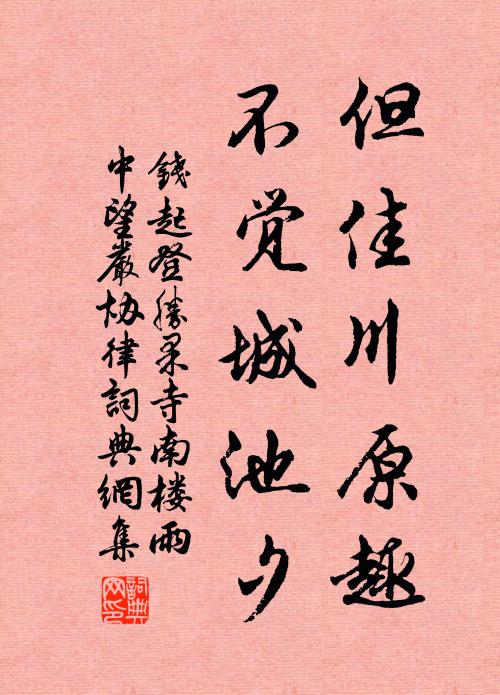 但佳川原趣
不觉城池夕
錢起登勝果寺南楼雨
中望嚴协律詞典網集
詞典
网印